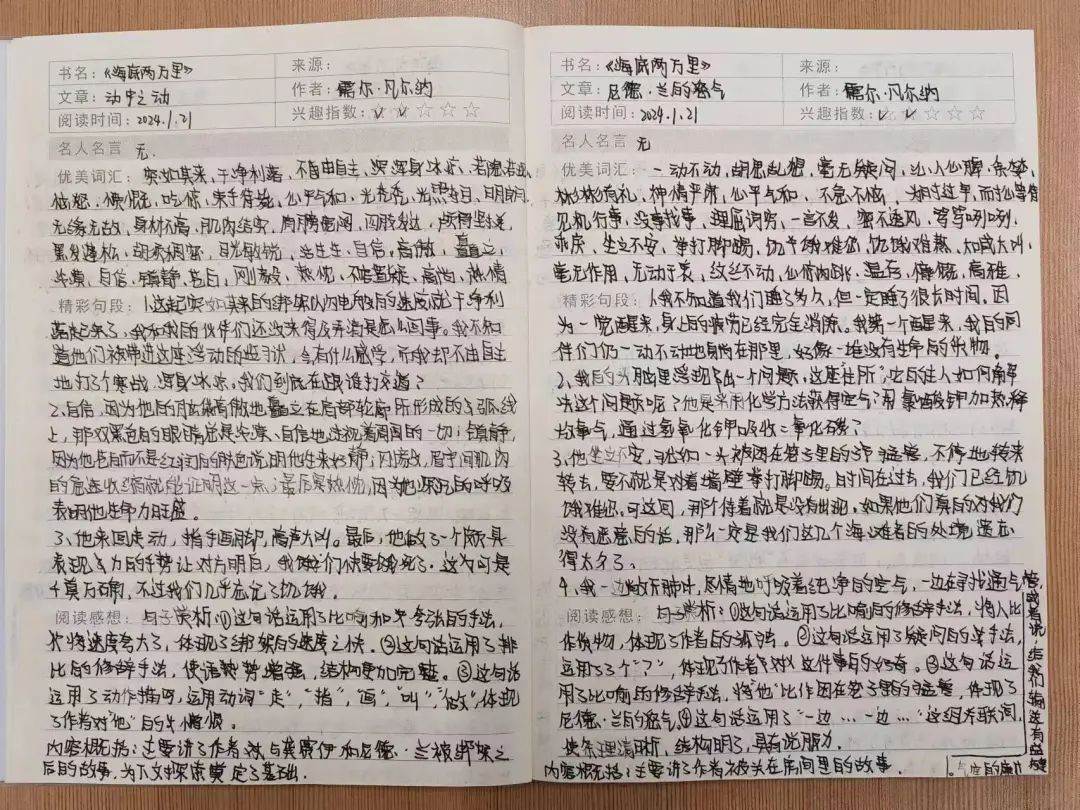 书名：《海底两万里》
来源：
文章：动中之动
作者：儒尔·凡尔纳
阅读时间：2024.1.21
兴趣指数：
名人名言 无.
优美词汇：突如其来、干净利落、不由自主、浑身冰凉、若隐若现
吃惊、束手待毙、心平气和、光秃秃、
身材不高、肌肉结实、胸膛宽阔、
黑发蓬松、胡须稠密、目光敏锐、自信、高傲、矗立、
自信、镇静、苍白、刚毅、热忱、高傲、热情
精彩句段：1、这起突如其来的绑架以闪电般的速度就干净利
落起来了，我和我的伙伴们还没来得及弄清是怎么回事。我不知
道他们被带进这座浮动的监狱，会有什么感觉，而我却不由自主
地打了个寒战，浑身冰凉，我们到底在跟谁打交道？
2、自信，因为他的脑袋高傲地矗立在肩部轮廓所形成的弧线
上，那双黑色的眼睛总是冷漠、自信地注视着周围的一切；镇静，
因为他苍白而不是红润的肤色说明他生来好静；刚毅，眉宇间肌肉
的急速收缩就能证明这一点；最后是热忱，因为他深沉的呼吸
表明他生命力旺盛。
3、他来回走动，指手画脚，高声大叫。最后，他做了一个颇具
表现力的手势让对方明白，我们快要饿死了。这句可是
千真万确，不过我们几乎忘记了饥饿。
阅读感想：句子赏析：①这句话运用了比喻加夸张的手法，
将速度夸大了，体现了绑架的速度之快。②这句话运用了排
比的修辞手法，使语势增强，结构更加完整。③这句话
运用了动作描写，运用动词“走”，“指”，“画”，“叫”，“做”，体现
了作者对“他”的
内容概括：主要讲了作者与龚赛伊和尼德·兰被绑架之
后的故事，为下文探索奠定了基础.
书名：《海底两万里》
来源：
文章：尼德·兰的怒气
作者：儒尔·凡尔纳
阅读时间：2024.1.21
兴趣指数：
名人名言 无
优美词汇：一动不动、胡思乱想、毫无疑问、沁人心脾、
彬彬有礼、神情严肃、心平气和、不急不恼、
见机行事、没事找事、理屈词穷、一言不发、密不透风、骂骂咧咧、
乖戾、坐立不安、拳打脚踢、饥饿难忍、饥饿难熬、大喊大叫、
毫无作用、无动于衷、纹丝不动、温存、慷慨、高雅、
精彩句段：1、我不知道我们睡了多久，但一定睡了很长时间。因
为一觉醒来，身上的疲劳已经完全消除。我第一个醒来，我的同
伴们仍一动不动地躺在那里，好像一堆没有生命的货物。
2、我的头脑里浮现出一个问题，这座住所的主人如何解
决这个问题呢？他是采用化学方法获得空气？用氯酸钾加热释
放氧气，通过氢氧化钾吸收二氧化碳？
3、他坐立不安，犹如一头被困在笼子里的猛兽，不停地转来
转去，要不就是对着墙壁拳打脚踢。时间在过去，我们已经饥
饿难忍。可这回，那个侍者就是没有出现，如果他们真的对我们
没有恶意的话，那么一定是我们这几个海难者的处境遗忘
得太久了。
4、我一边敞开肺叶，尽情地呼吸着纯净的空气，一边在寻找通气管，
或者说，给我们输送有益
气体的
阅读感想：句子赏析：①这句话运用了比喻的修辞手法，将人比
作货物，体现了作者的②这句话运用了疑问的手法，
运用了3个“？”，体现了作者对这件事的好奇。③这句话运
用了比喻的修辞手法，将“他”比作困在笼子里的猛兽，体现了
尼德·兰的怒气。④这句话运用了“一边…一边…”这组关联词，
使条理清晰，结构明了，具有说服力.
内容概括：主要讲了作者被关在房间里的故事.